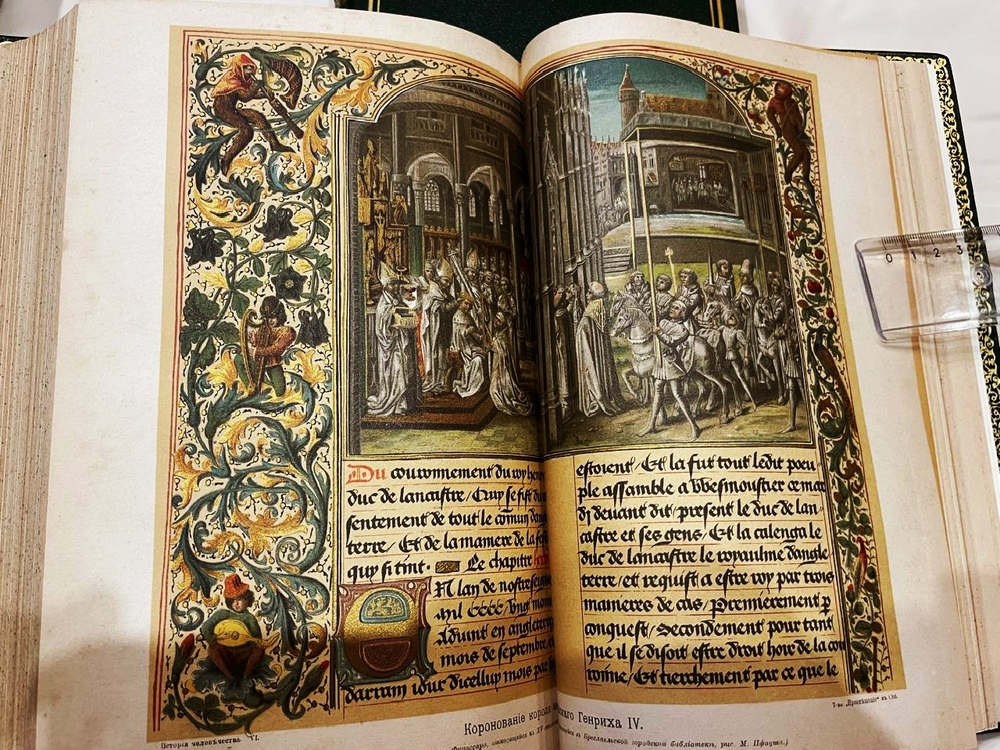 Du couronnement du roy henry
duc de lancastre / Quy se fist du
sentement de tout le comun dangle
terre / Et de la maniere de la feste
quy si tint · Le chapitre
El lan de nostre seigneur
mil cccc / ung mois
Advint en angleterre
mois de septembre et
darrain iour dicelluy mois par
estoient / Et la fut tout ledit peu
ple assamble a Wesmoustier ce mar
dj devant dit / present le duc de lan
castre et ses gens / Et la calenga le
duc de lancastre le royaulme dangle
terre / et requist a estre roy par trois
manieres de cas / Premierement p
conquest / Secondement pour tant
que il se disoit estre droit hoir de la cou
ronne / Et tierchement par ce que le
Т-во „Просвѣщеніе“ въ Спб.
Исторія человѣчества. VI.
Коронованіе короля Генриха IV.
Бреславльской городской библіотекѣ, рис. М. Пфоутъ.)
0 1 2 3